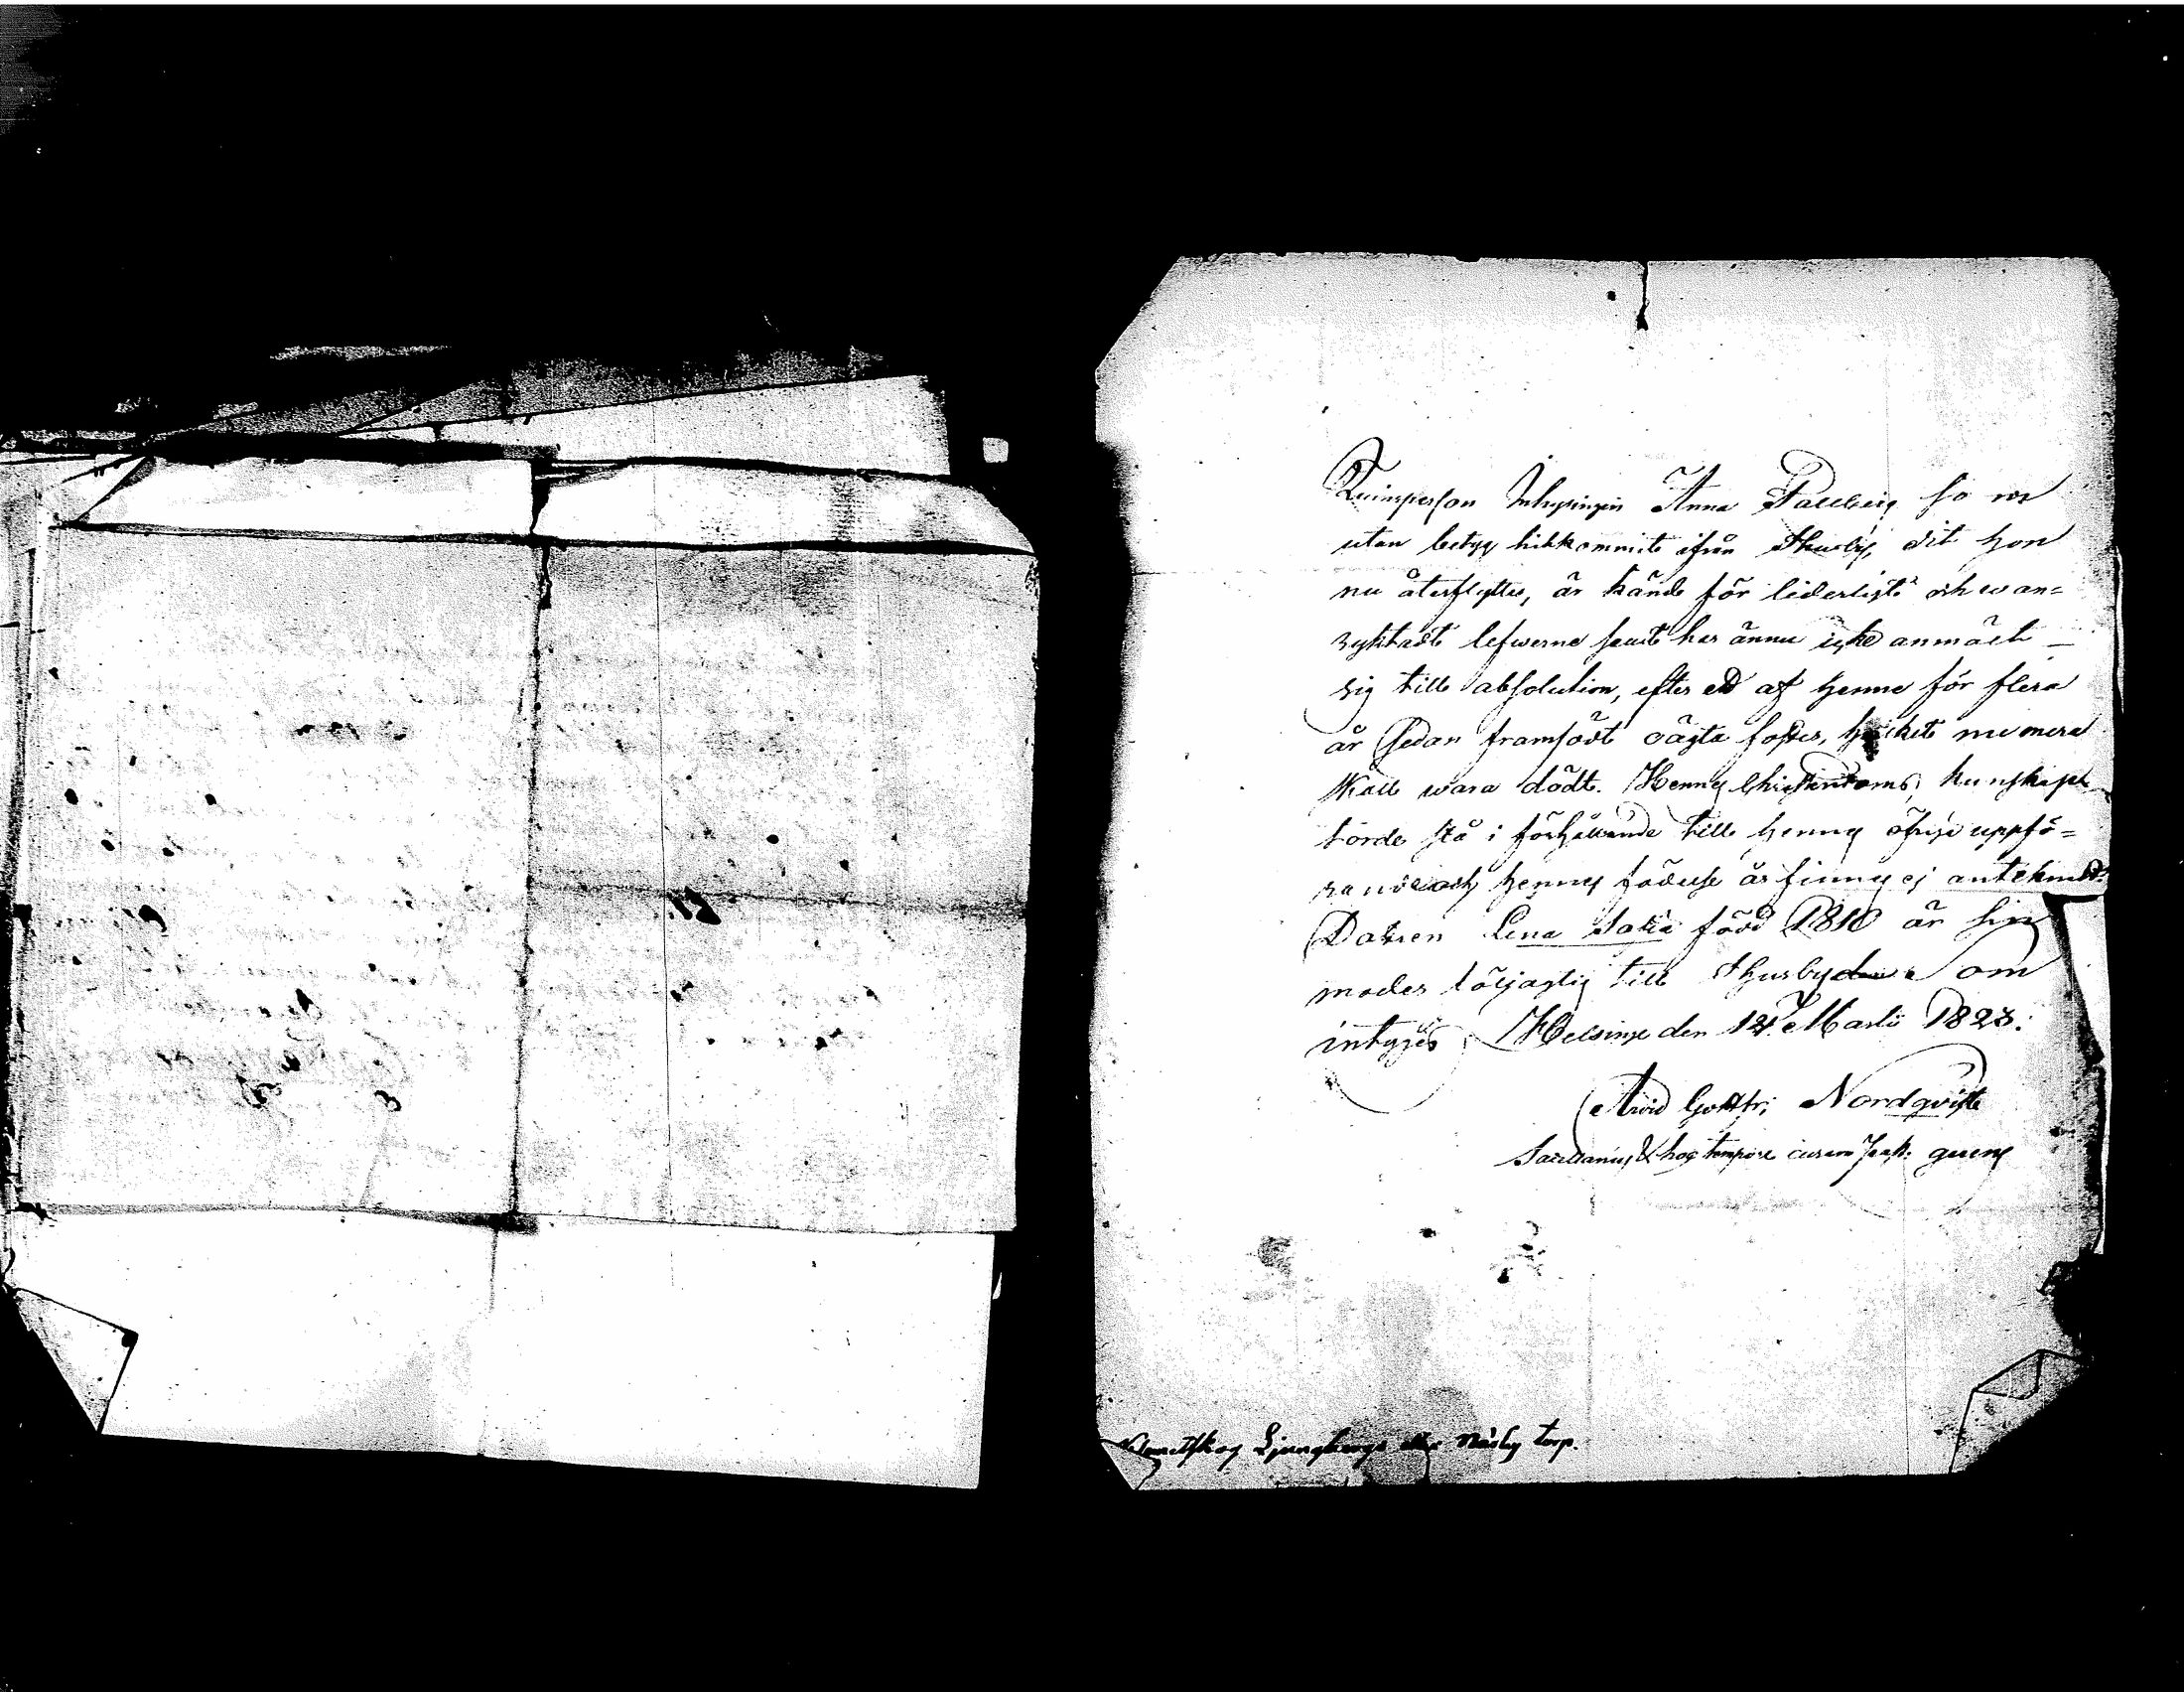 Qwinsperson Inhysingen Anna Palberg så som
utan betyg hitkommit ifrån Thusby, dit hon
nu återflyttar, är känd för liderligt och wan=
ryktadt lefwerne samt har ännu icke anmält
sig till absolution, efter ett af henne för flera
år sedan framfödt oägta foster, hwilket numera
skall wara dödt. Hennes Christendoms kunskap
torde stå i förhållande till hennes öfriga uppfö=
rande och hennes födelse år finnes ej antecknadt.
Dottren Lena Sofia född 1810 är sin
moder följagtig till Thusby om
intygas Helsinge den 12 Martii 1823.
Arvid Gottfr; Nordqvist
Sacellanus & hoc tempore curam past: gerens
Klemetskog Ljungberga Näsby torp.